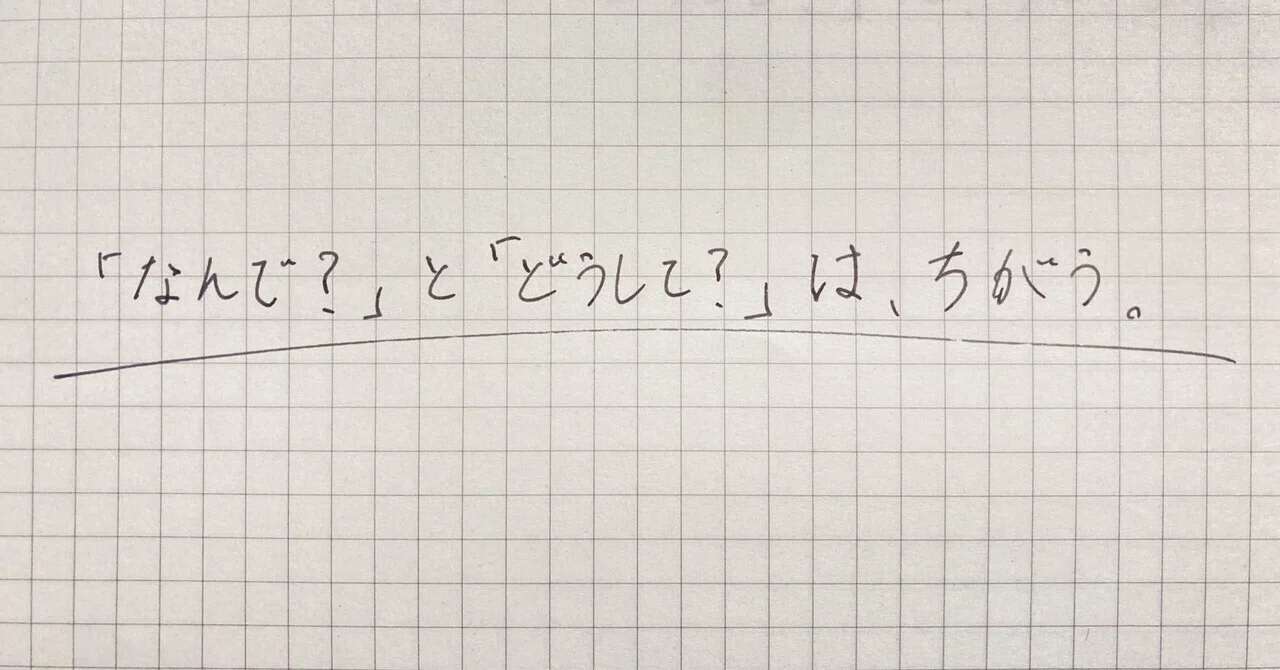 「なんで?」と「どうして?」は、ちがう。